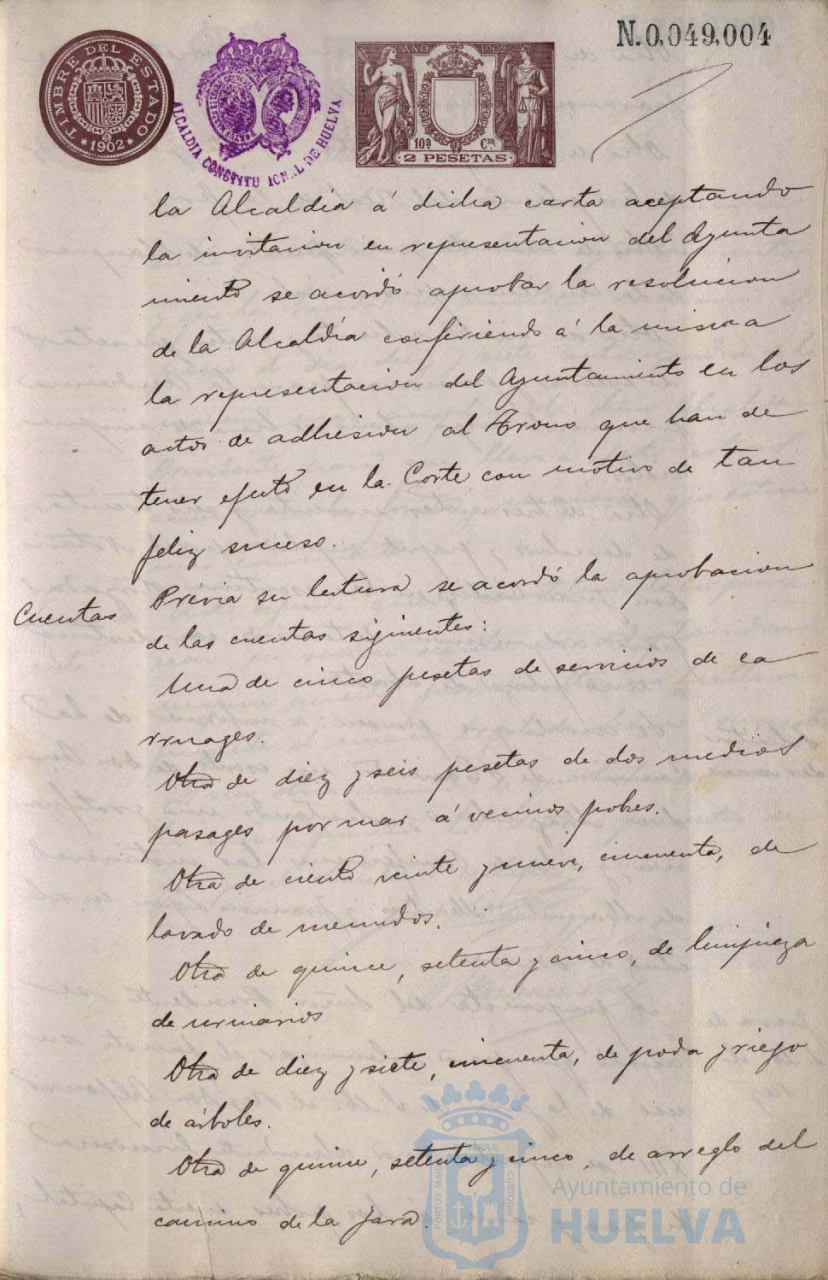 N.0,049,004
TIMBRE DEL ESTADO
*1902*
ALCALDIA CONSTITUCIONAL DE HUELVA
AÑO 1902
10ª Cª
2 PESETAS
la Alcaldía á dicha carta aceptando
la invitacion en representacion del Ayunta
miento se acordó aprobar la resolucion
de la Alcaldía confiriendo á la misma
la representacion del Ayuntamiento en los
actos de adhesion al Trono que han de
tener efecto en la Corte con motivo de tan
feliz suceso.
Cuentas
Prévia su lectura se acordó la aprobacion
de las cuentas siguientes:
Una de cinco pesetas de servicios de ca
rruages.
Otra de diez y seis pesetas de dos medios
pasages por mar á vecinos pobres.
Otra de ciento veinte y nueve, cincuenta, de
lavado de menudos.
Otra de quince, setenta y cinco, de limpieza
de urinarios
Otra de diez y siete, cincuenta, de poda y riego
de árboles.
Otra de quince, setenta y cinco, de arreglo del
camino de la Jara.
PORTUS MARIS
CUSTODIA
Ayuntamiento de
HUELVA